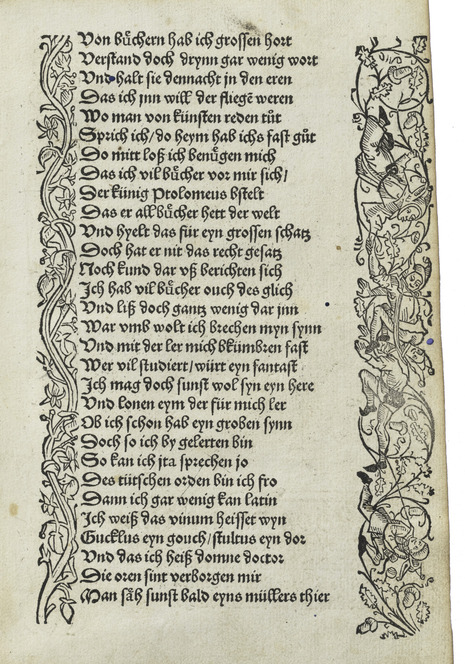 Von bu̎chern hab ich grossen hort
Verstand doch drynn gar wenig wort
Vnd halt sie dennacht jn den eren
Das ich jnn will der fliegē weren
Wo man von künsten reden tůt
Sprich ich / do heym hab ichs fast gůt
Do mitt loß ich benu̎gen mich
Das ich vil bu̎cher vor mir sich /
Der künig Ptolomeus bstelt
Das er all bu̎cher hett der welt
Vnd hyelt das für eyn grossen schatz
Doch hat er nit das recht gesatz
Noch kund dar vß berichten sich
Ich hab vil bu̎cher ouch des glich
Vnd liß doch gantz wenig dar jnn
War vmb wolt ich brechen myn synn
Vnd mit der ler mich bkümbren fast
Wer vil studiert / würt eyn fantast
Ich mag doch sunst wol syn eyn here
Vnd lonen eym der für mich ler
Ob ich schon hab eyn groben synn
Doch so ich by gelerten bin
So kan ich jta sprechen jo
Des tütschen orden bin ich fro
Dann ich gar wenig kan latin
Ich weiß das vinum heisset wyn
Gucklus eyn gouch / stultus eyn dor
Vnd das ich heiß domne doctor
Die oren sint verborgen mir
Man sa̎h sunst bald eyns müllers thier